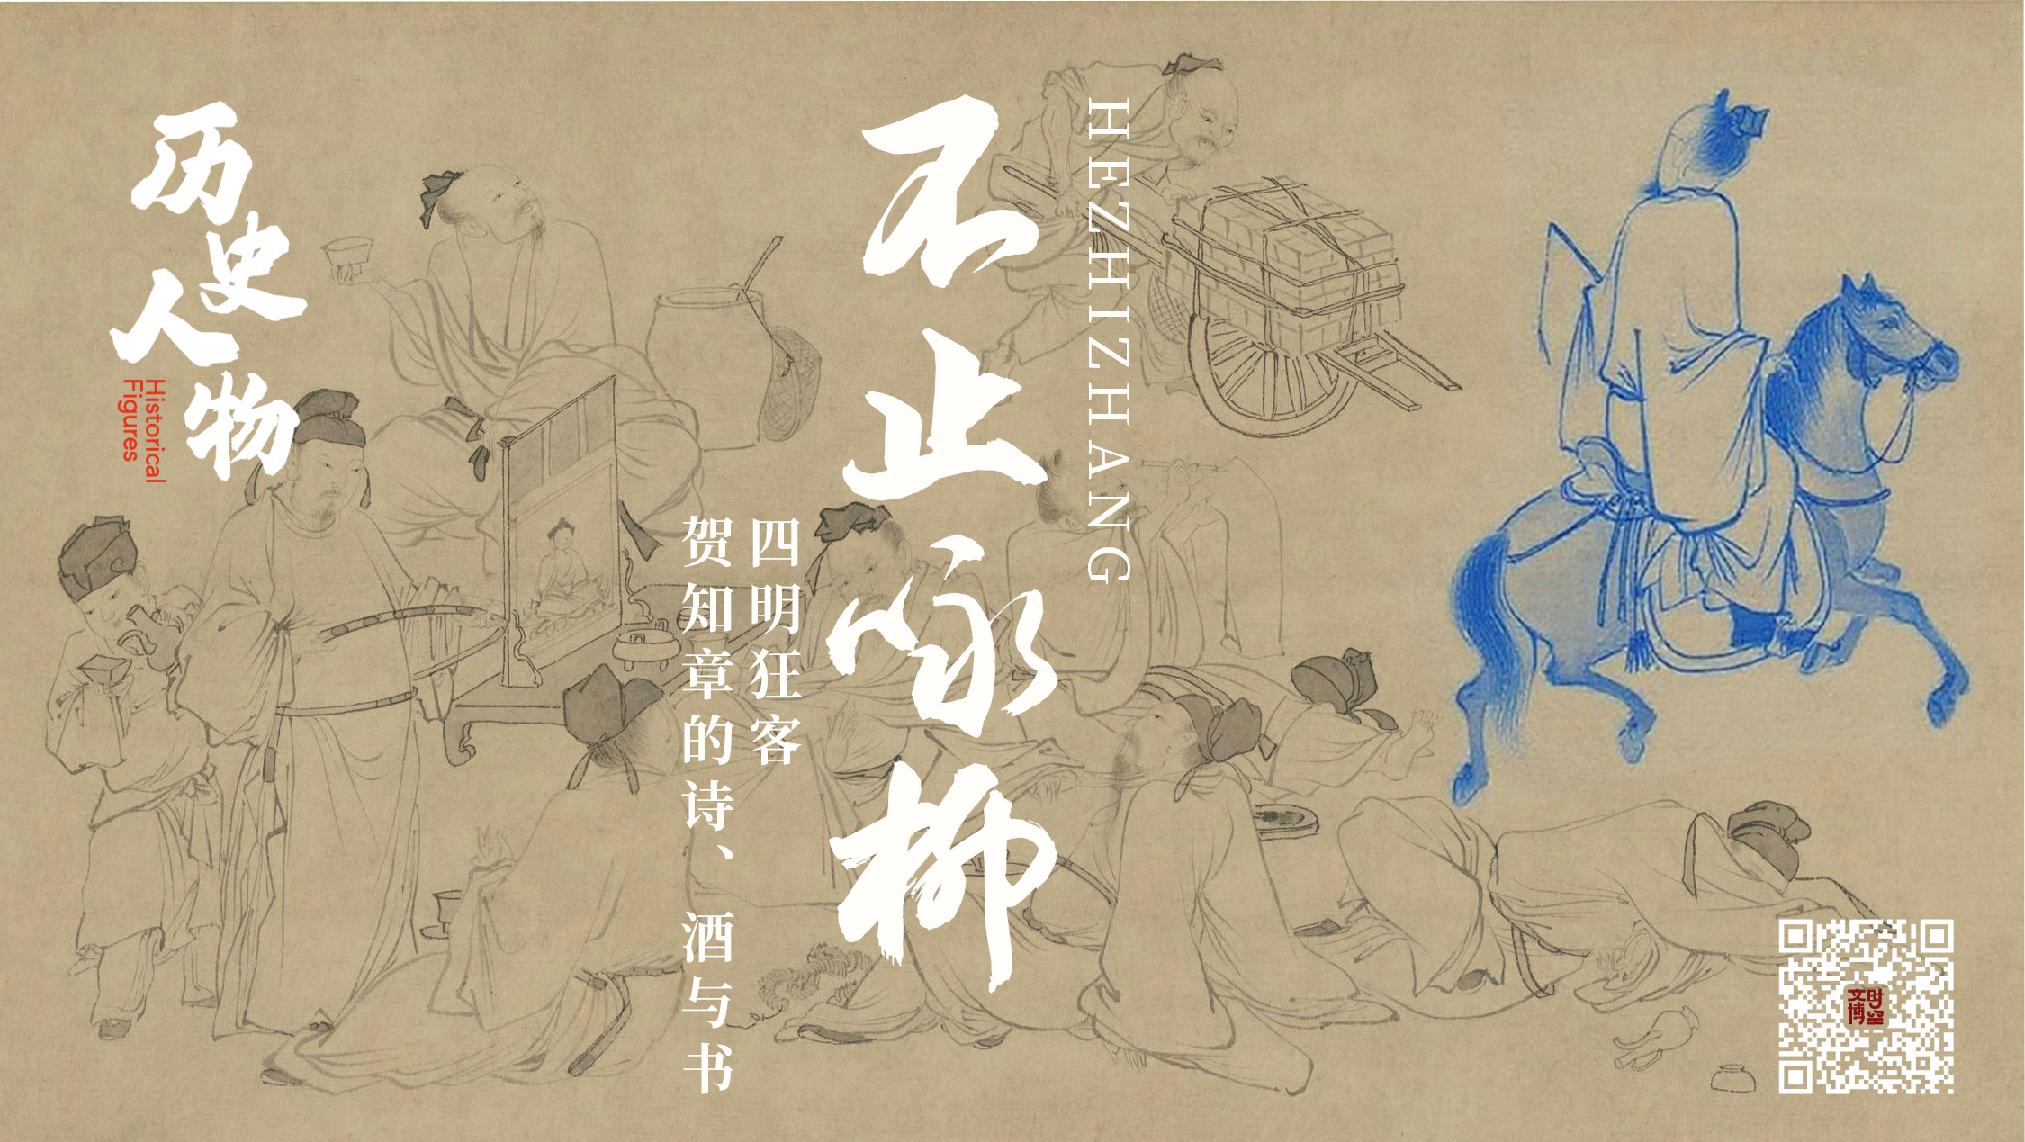 历史人物
Historical
Figures
不止咏柳
HEZHIZHANG
四明狂客
贺知章的诗、酒与书
文博
时空